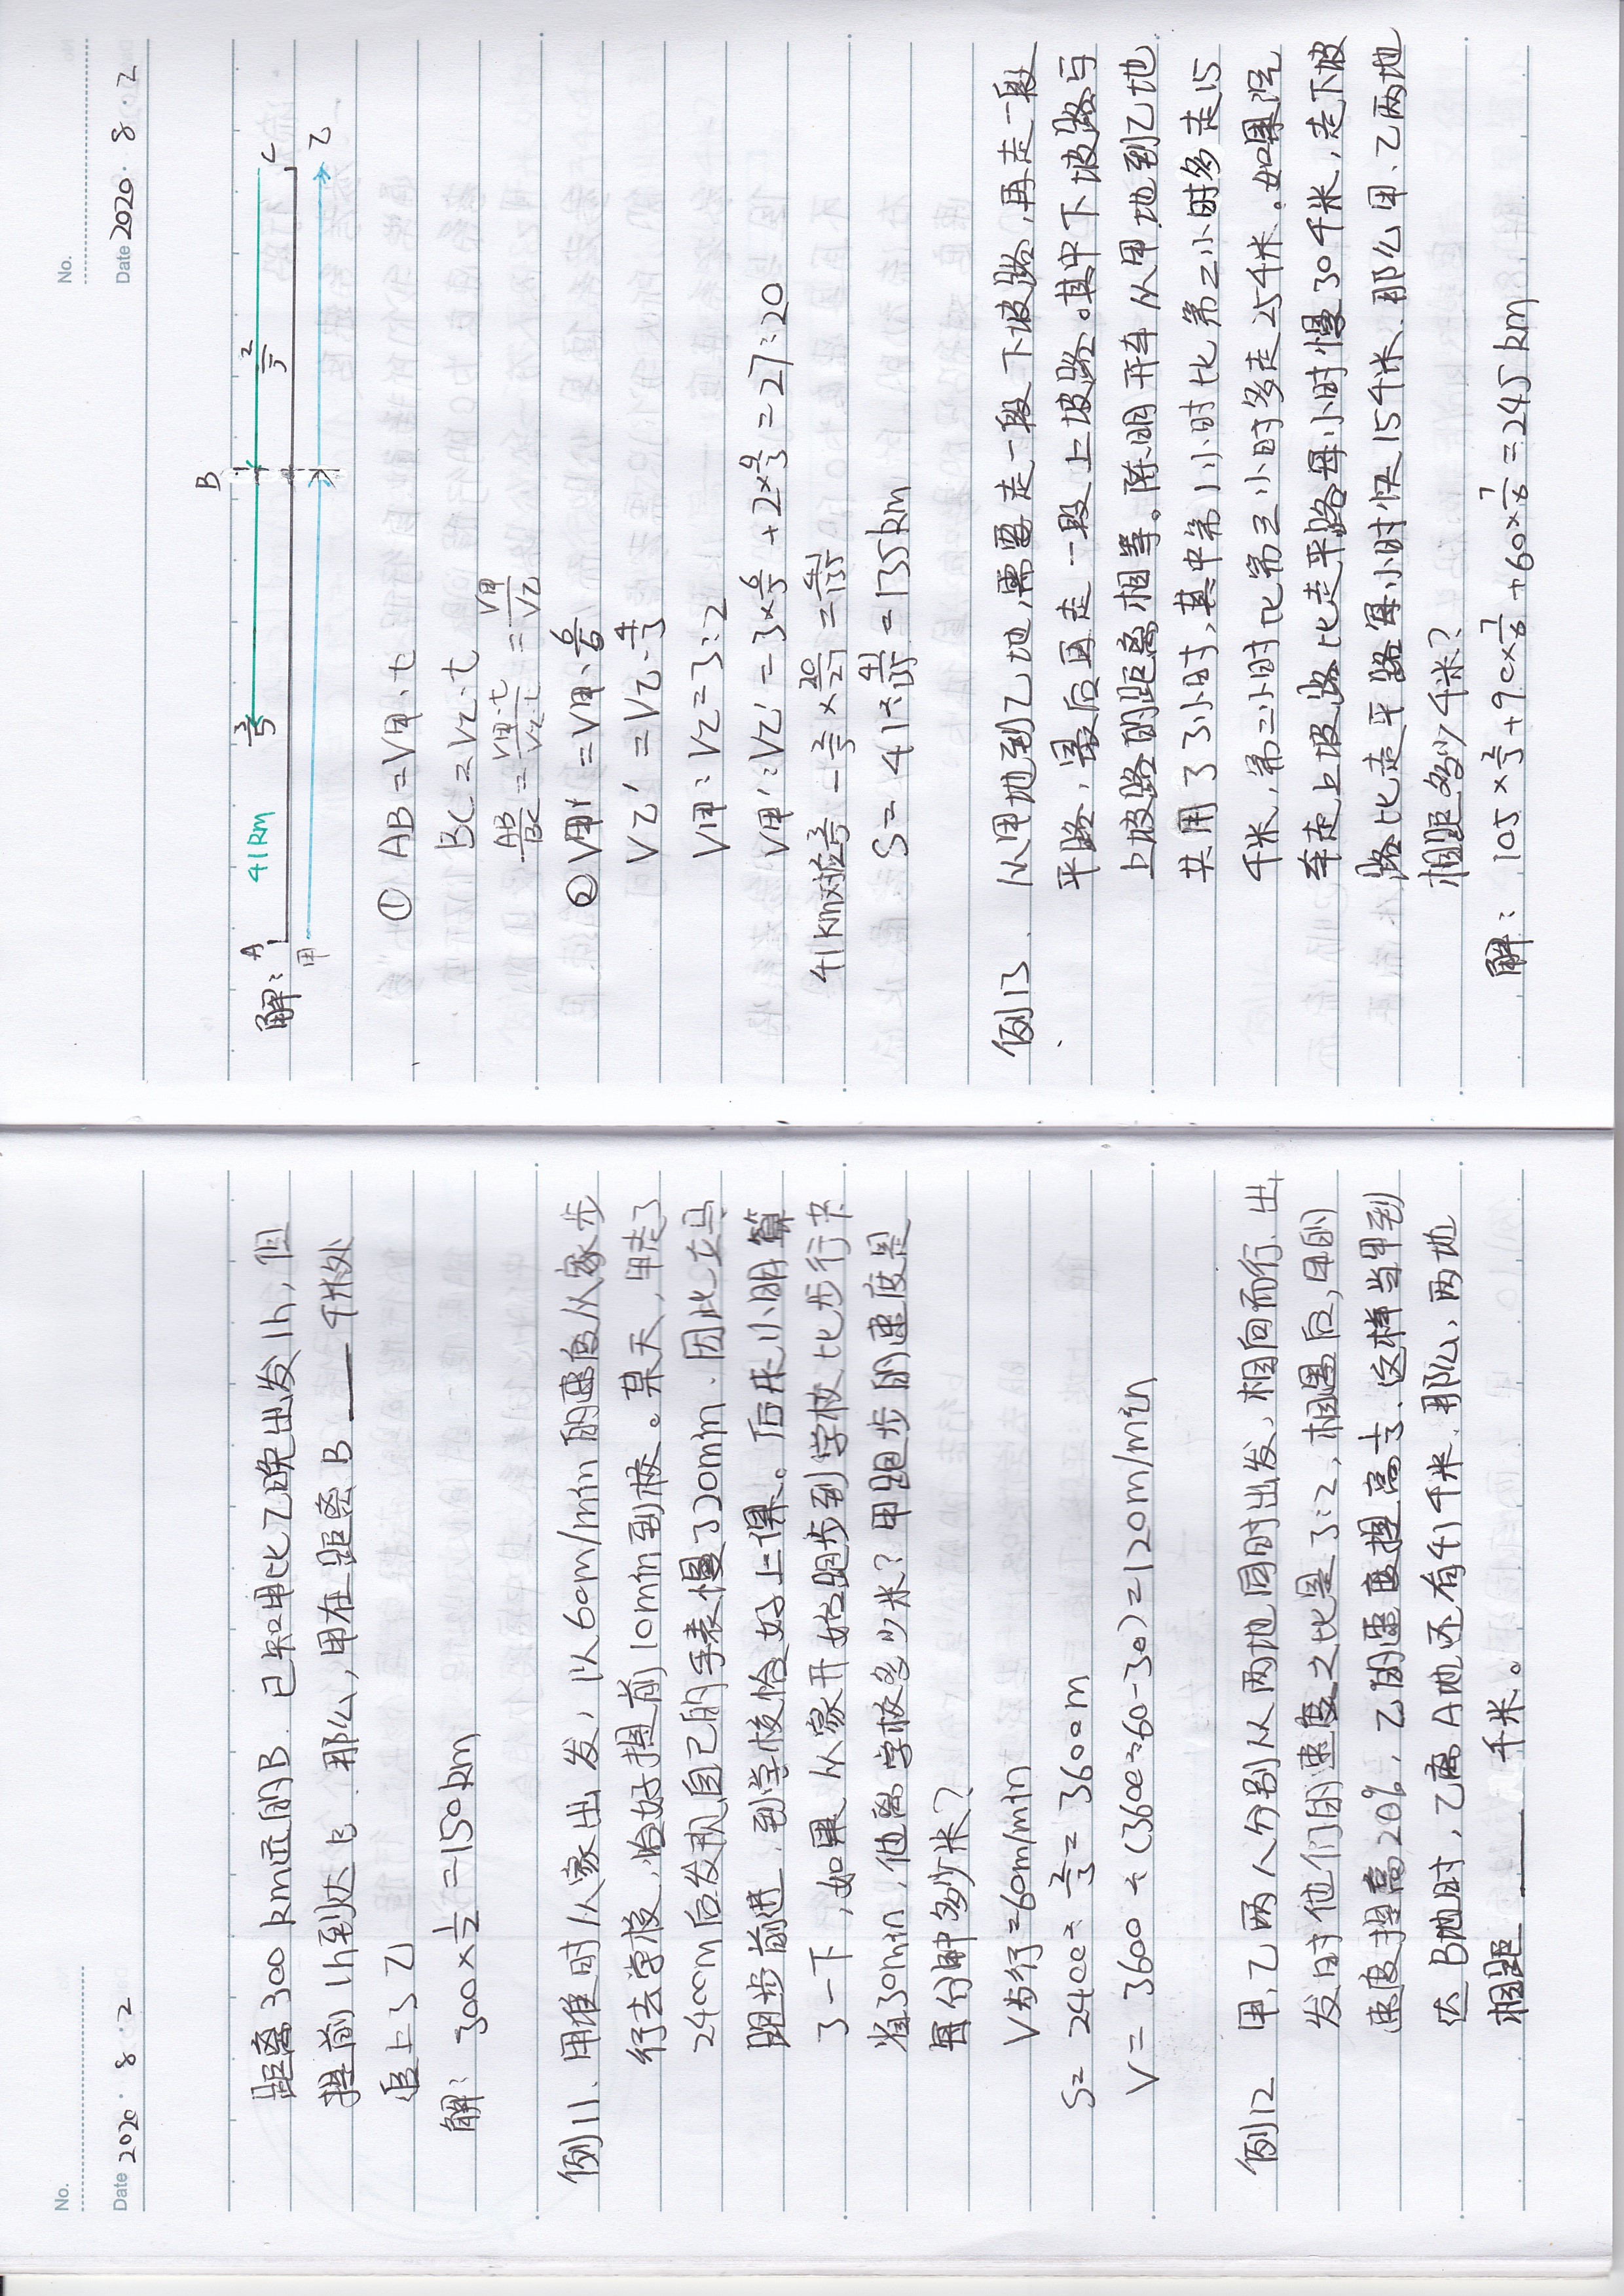 No.
Date 2020 · 8 · 2
距离300km远的B. 已知甲比乙晚出发1h, 但
提前1h到达B. 那么, 甲在距离B____千米处
追上了乙
解: 300×1/2=150km
例11. 甲准时从家出发, 以60m/min的速度从家步
行去学校, 恰好提前10min到校。某天, 甲走了
2400m后发现自己的手表慢了20min. 因此立马
跑步前进, 到学校恰好上课。后来小明算
了一下, 如果从家开始跑步到学校比步行节
省30min, 他离学校多少米? 甲跑步的速度是
每分钟多少米?
V步行=60m/min
S= 2400÷2/3= 3600m
V= 3600÷(3600÷60-30)=120m/min
例12 甲, 乙两人分别从两地同时出发, 相向而行. 出
发时他们的速度之比是3:2, 相遇后, 甲的
速度提高20%, 乙的速度提高1/3. 这样当甲到
达B地时, 乙离A地还有41千米. 那么, 两地
相距____千米。
No.
Date 2020 · 8 · 2
解: A B C
41km 3/5 2/5
甲 乙
① AB=V甲·t
BC=V乙·t
AB/BC=V甲·t/V乙·t=V甲/V乙
② V甲'=V甲·6/5
V乙'=V乙·4/3
V甲:V乙=3:2
V甲':V乙'=3×6/5÷2×4/3=27:20
41km对应3/5-2/5×20/27=41/135
S=41÷41/135=135km
例13、从甲地到乙地, 需要走一段下坡路, 再走一段
平路, 最后再走一段上坡路。其中下坡路与
上坡路的距离相等。陈明开车从甲地到乙地
共用了3小时, 其中第1小时比第二小时多走15
千米, 第二小时比第三小时多走25千米. 如果汽
车走上坡路比走平路每小时慢30千米, 走下坡
路比走平路每小时快15千米. 那么甲、乙两地
相距多少千米?